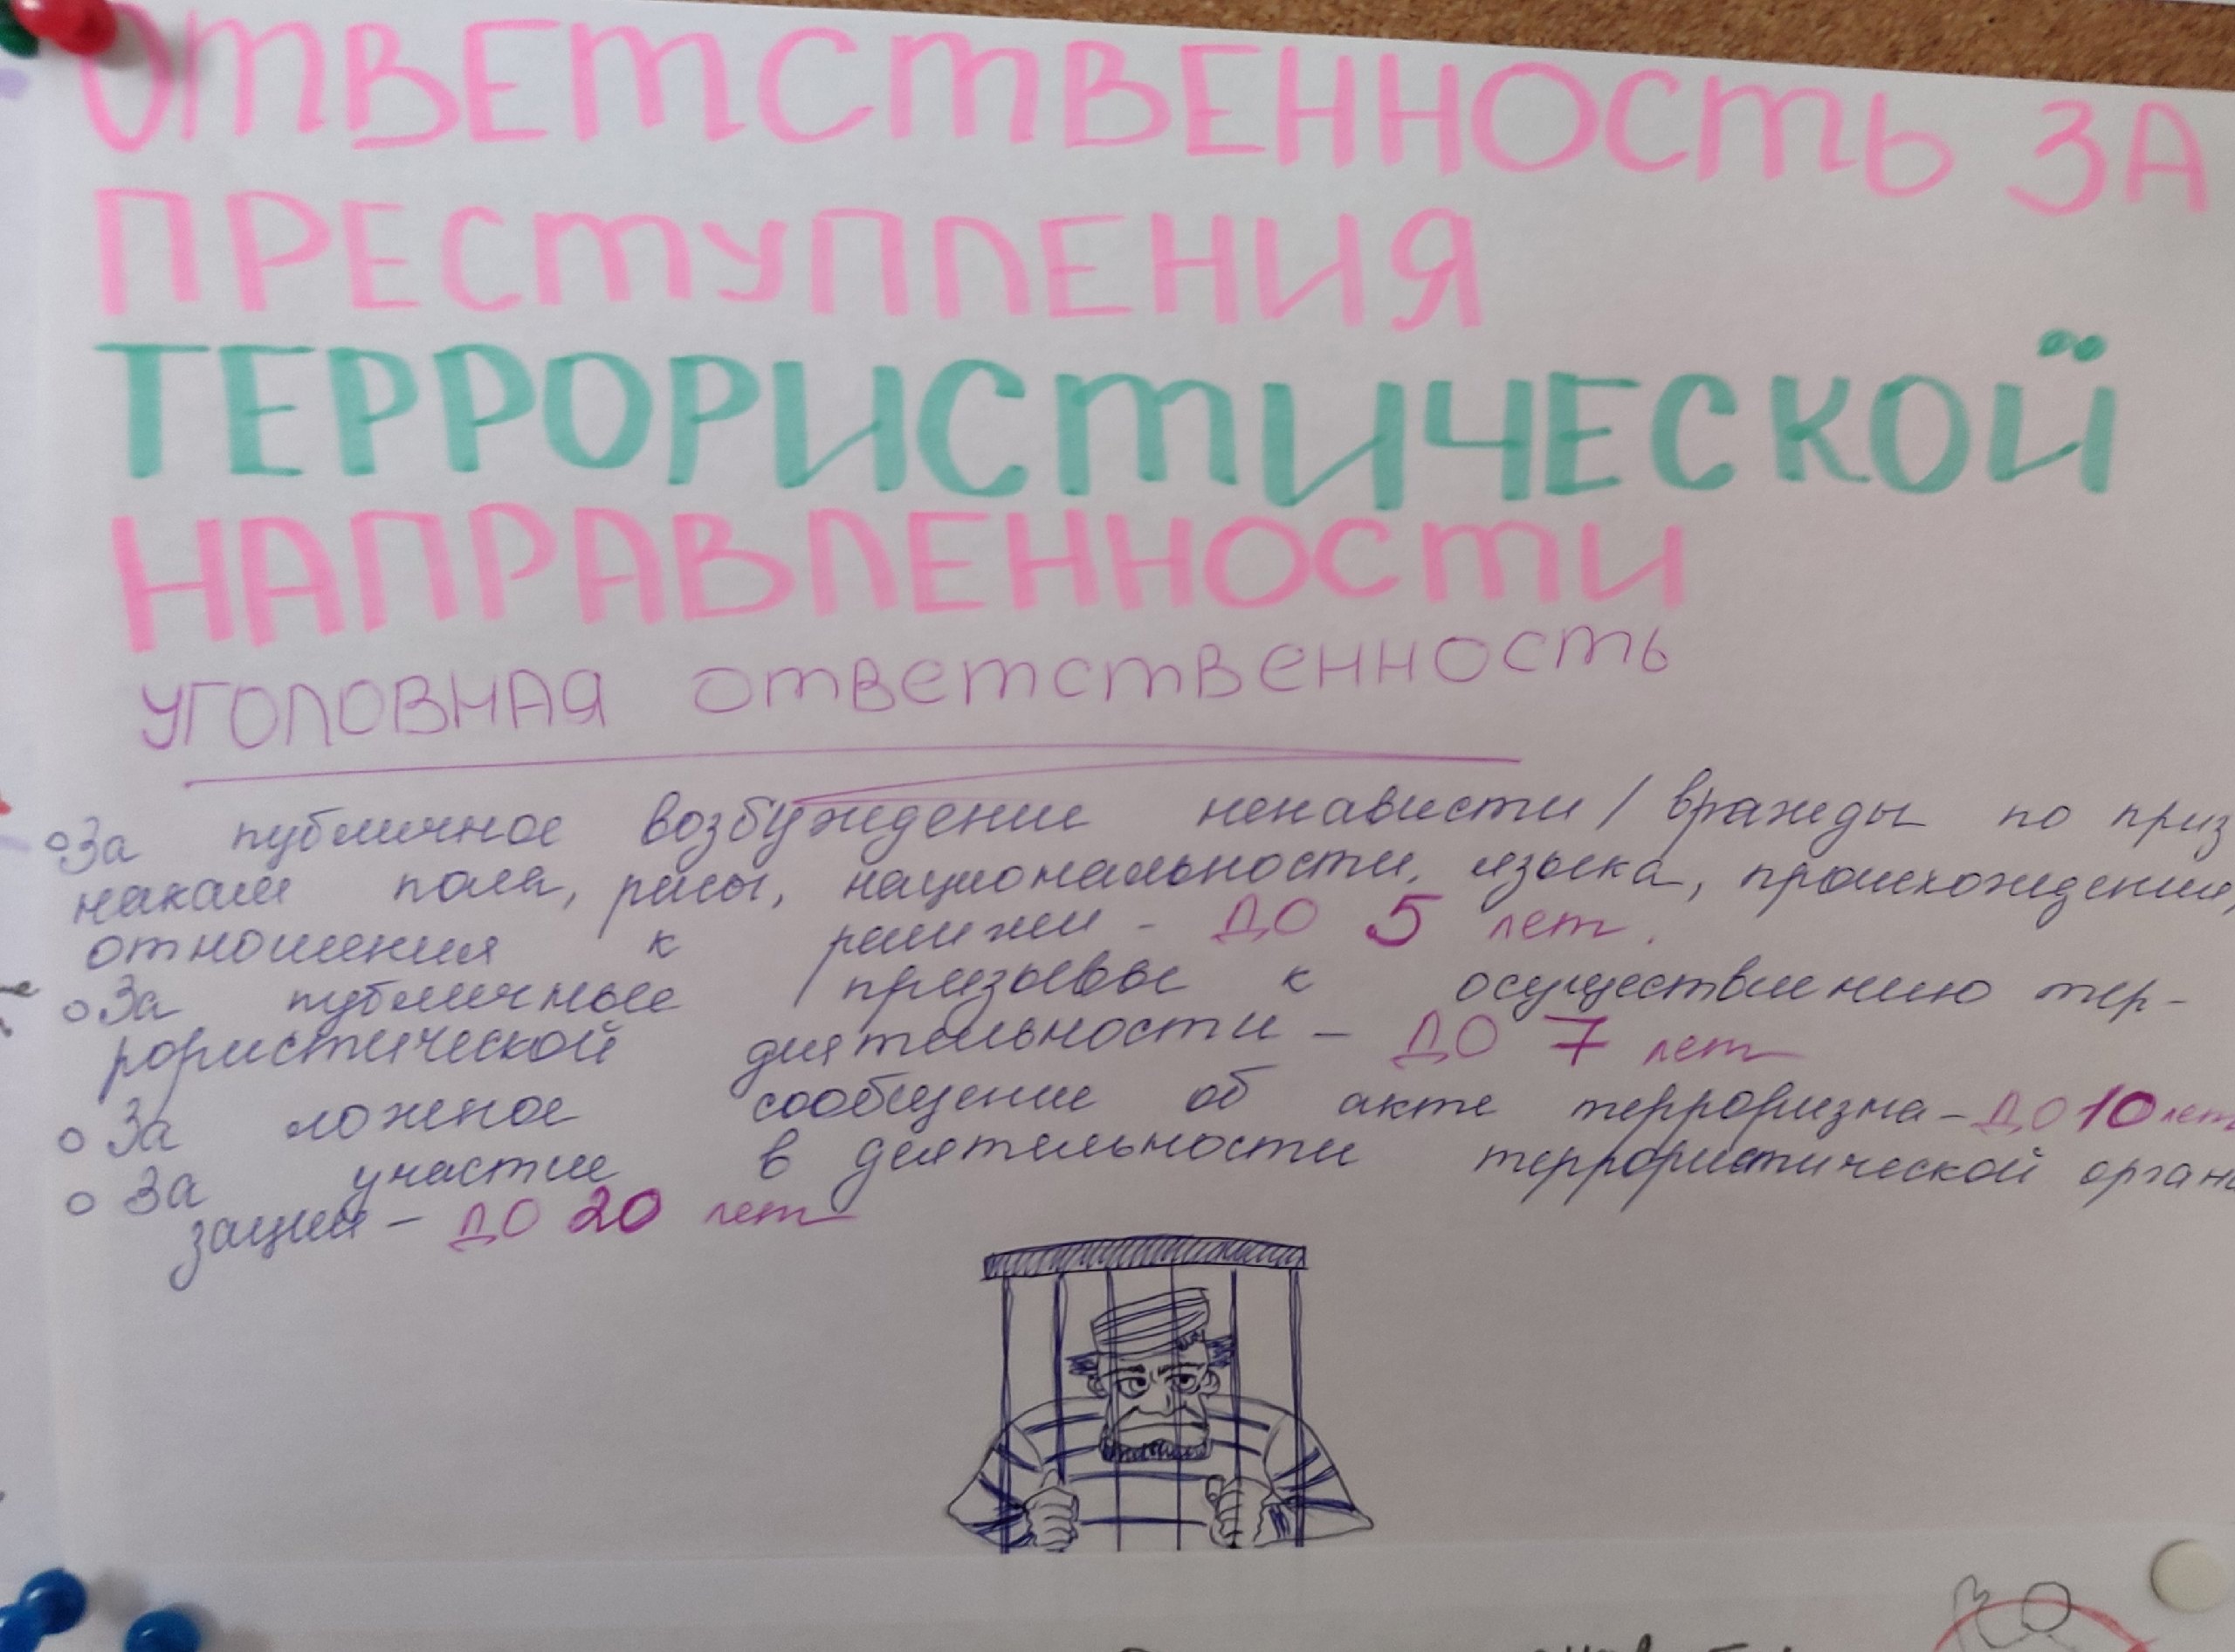 ОТВЕТСТВЕННОСТЬ ЗА
ПРЕСТУПЛЕНИЯ
ТЕРРОРИСТИЧЕСКОЙ
НАПРАВЛЕННОСТИ
УГОЛОВНАЯ ответственность
За публичное возбуждение ненависти / вражды по приз
накам пола, расы, национальности, языка, происхождения,
отношения к религии - ДО 5 лет.
За публичные призывы к осуществлению тер-
рористической деятельности - ДО 7 лет
За ложное сообщение об акте терроризма - ДО 10 лет
За участие в деятельности террористической органи
зации - ДО 20 лет